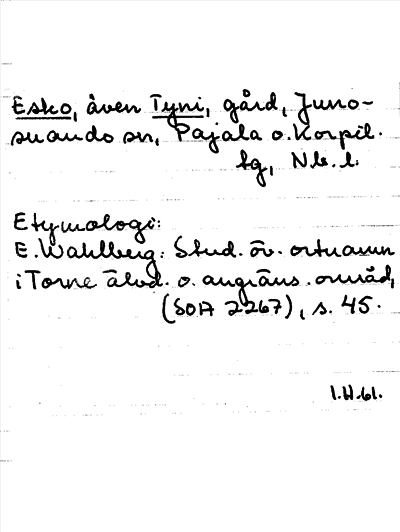 Esko, även Tyni, gård, Juno-
suando sn, Pajala o. Korpil.
tg, Nb. l.
Etymologi:
E. Wahlberg: Stud. öv. ortnamn
i Torne älvd. o. angräns. område,
(SOA 2267), s. 45.
I.H.61.